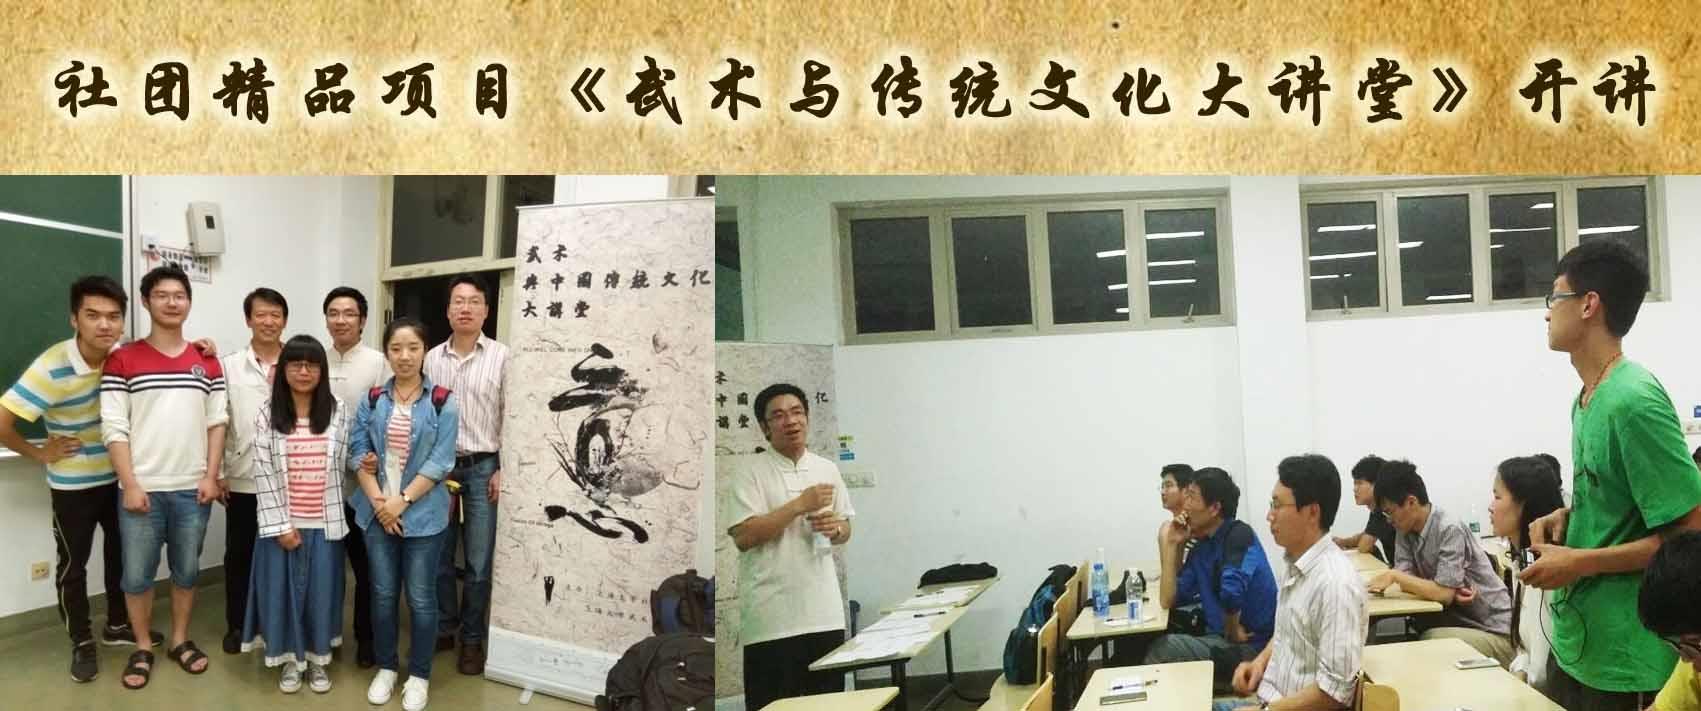 社团精品项目《武术与传统文化大讲堂》开讲
武术
與中国傳統文化
大講堂
意
术
中国
化
講堂